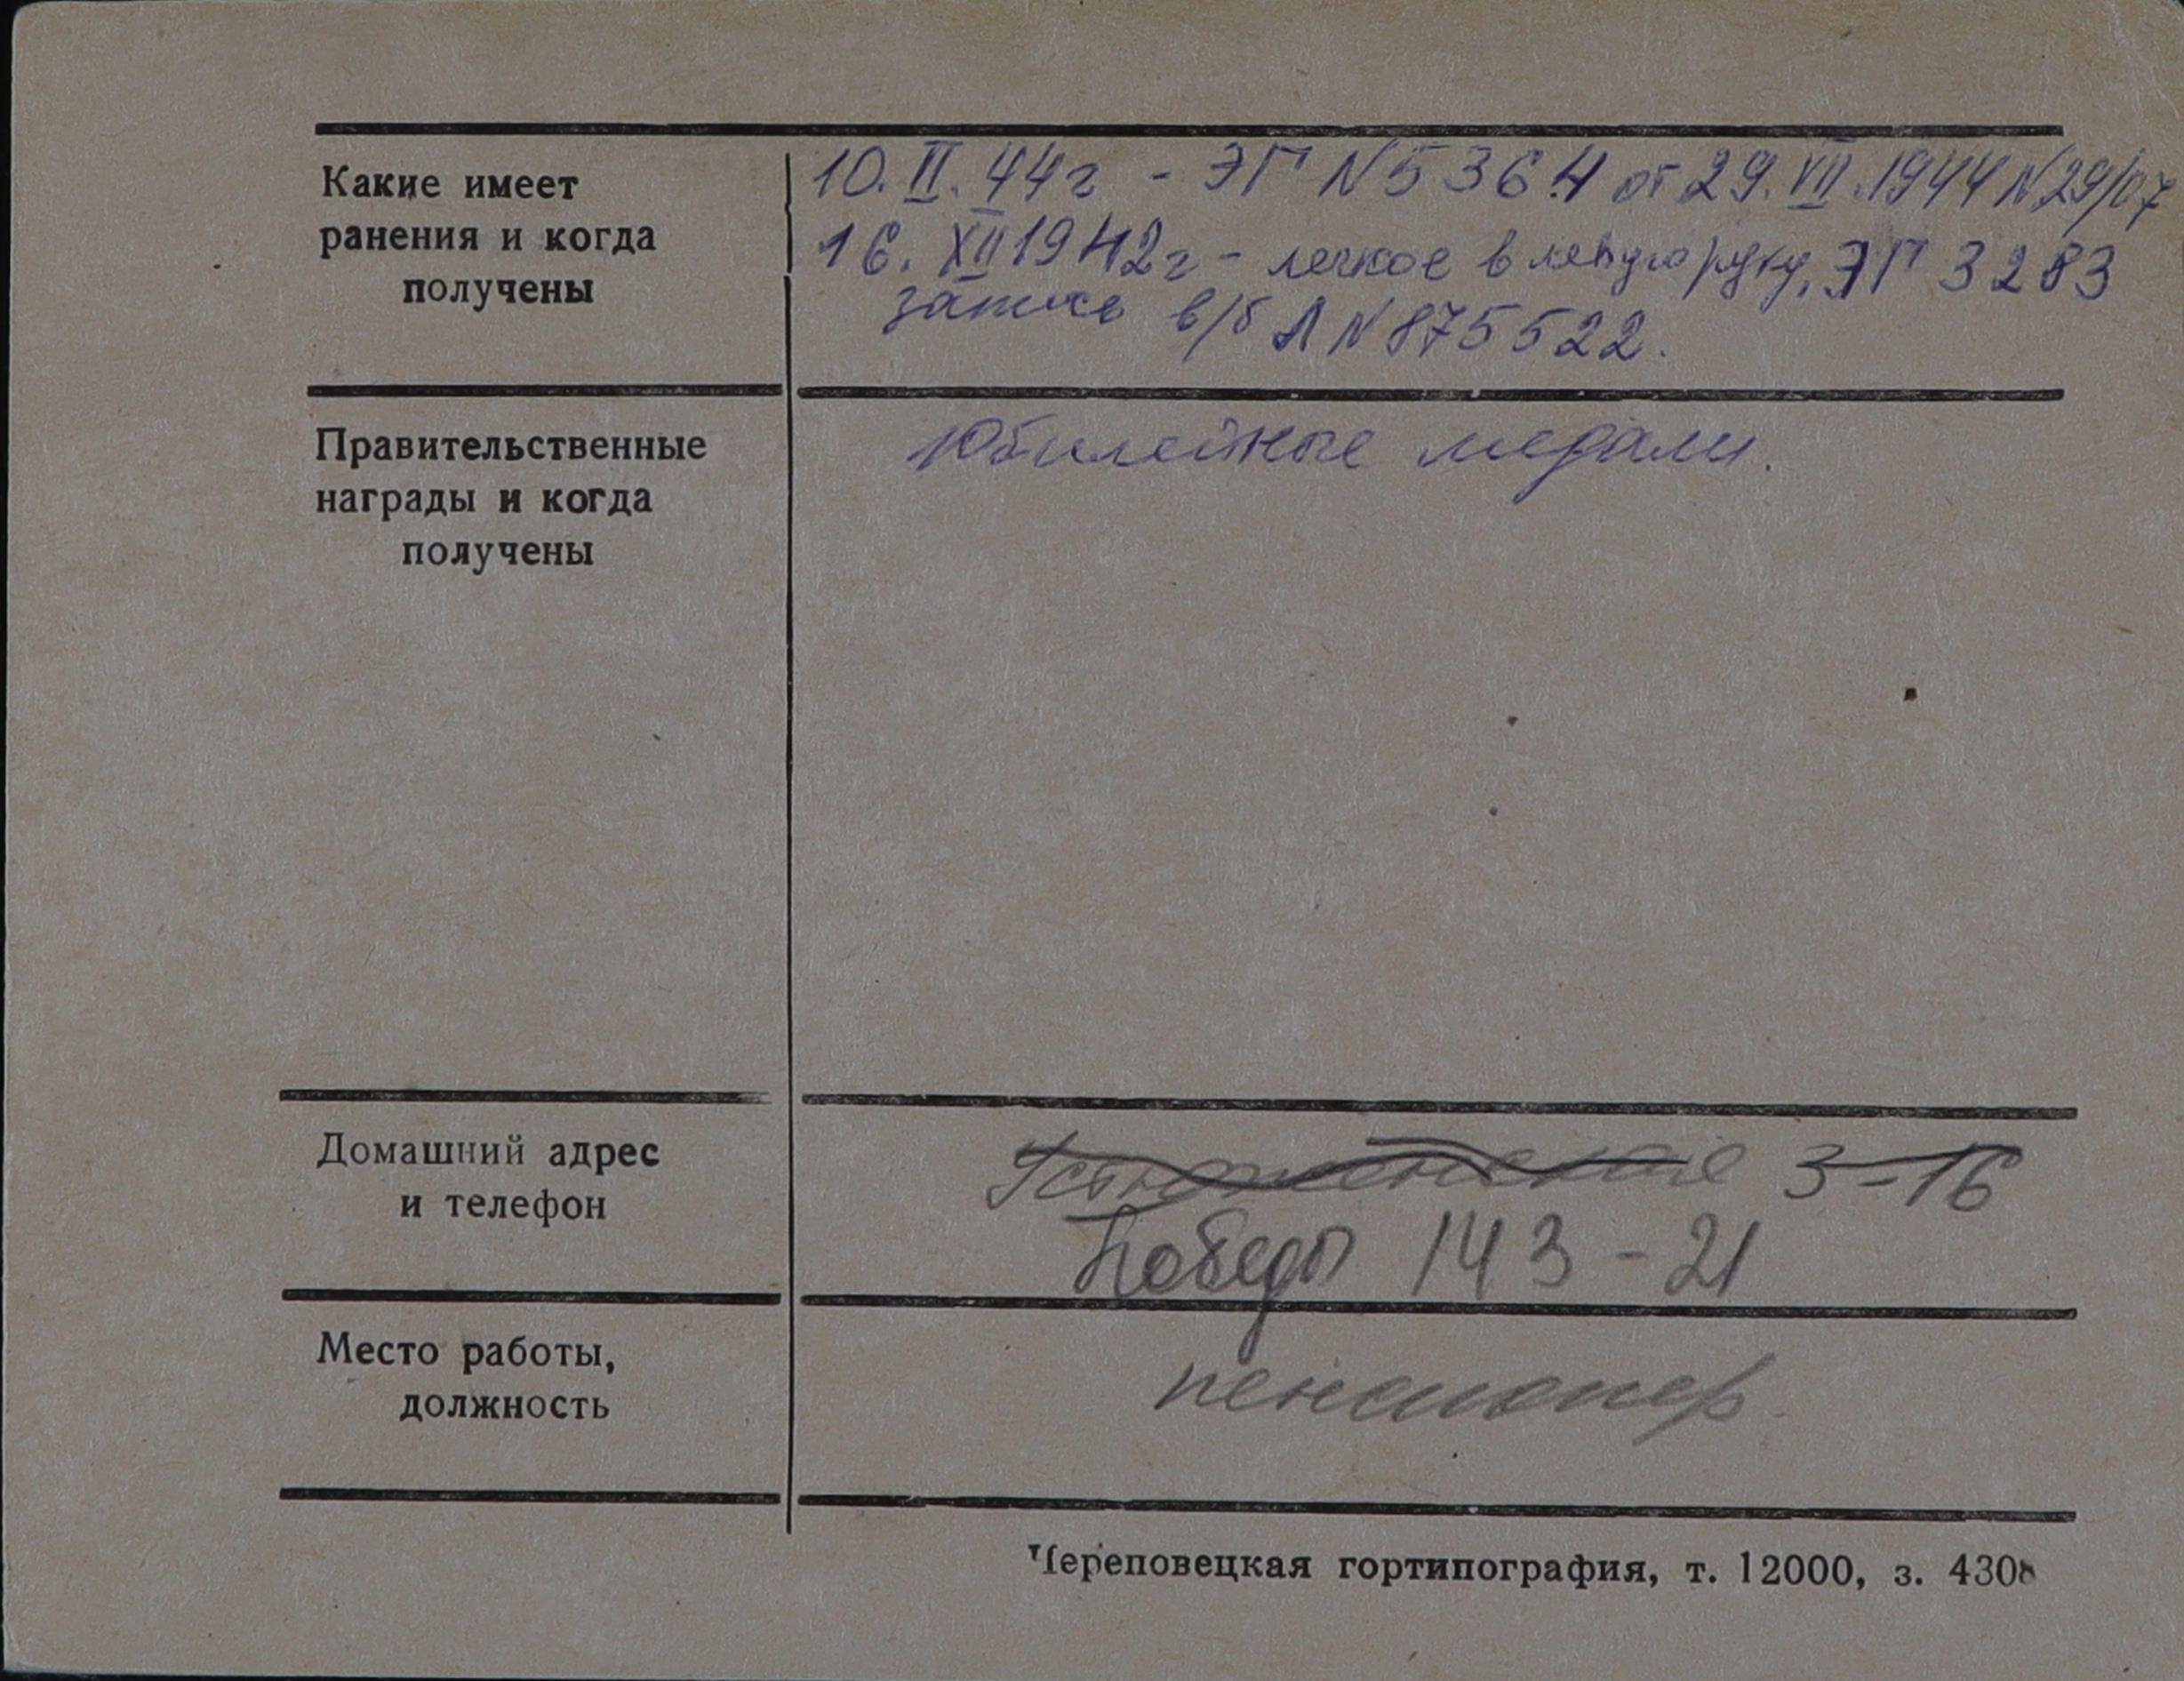 Какие имеет
ранения и когда
получены
10.II.44г - ЭГ N5364 от 29.VII.1944 N29/07
16.XII 1942г - легкое в левую руку, ЭГ 3283
запись в/б Л N875522.
Правительственные
награды и когда
получены
Юбилейные медали.
Домашний адрес
и телефон
Устюженская 3-16
Победы 143-21
Место работы,
должность
пенсионер
Череповецкая гортипография, т. 12000, з. 4308